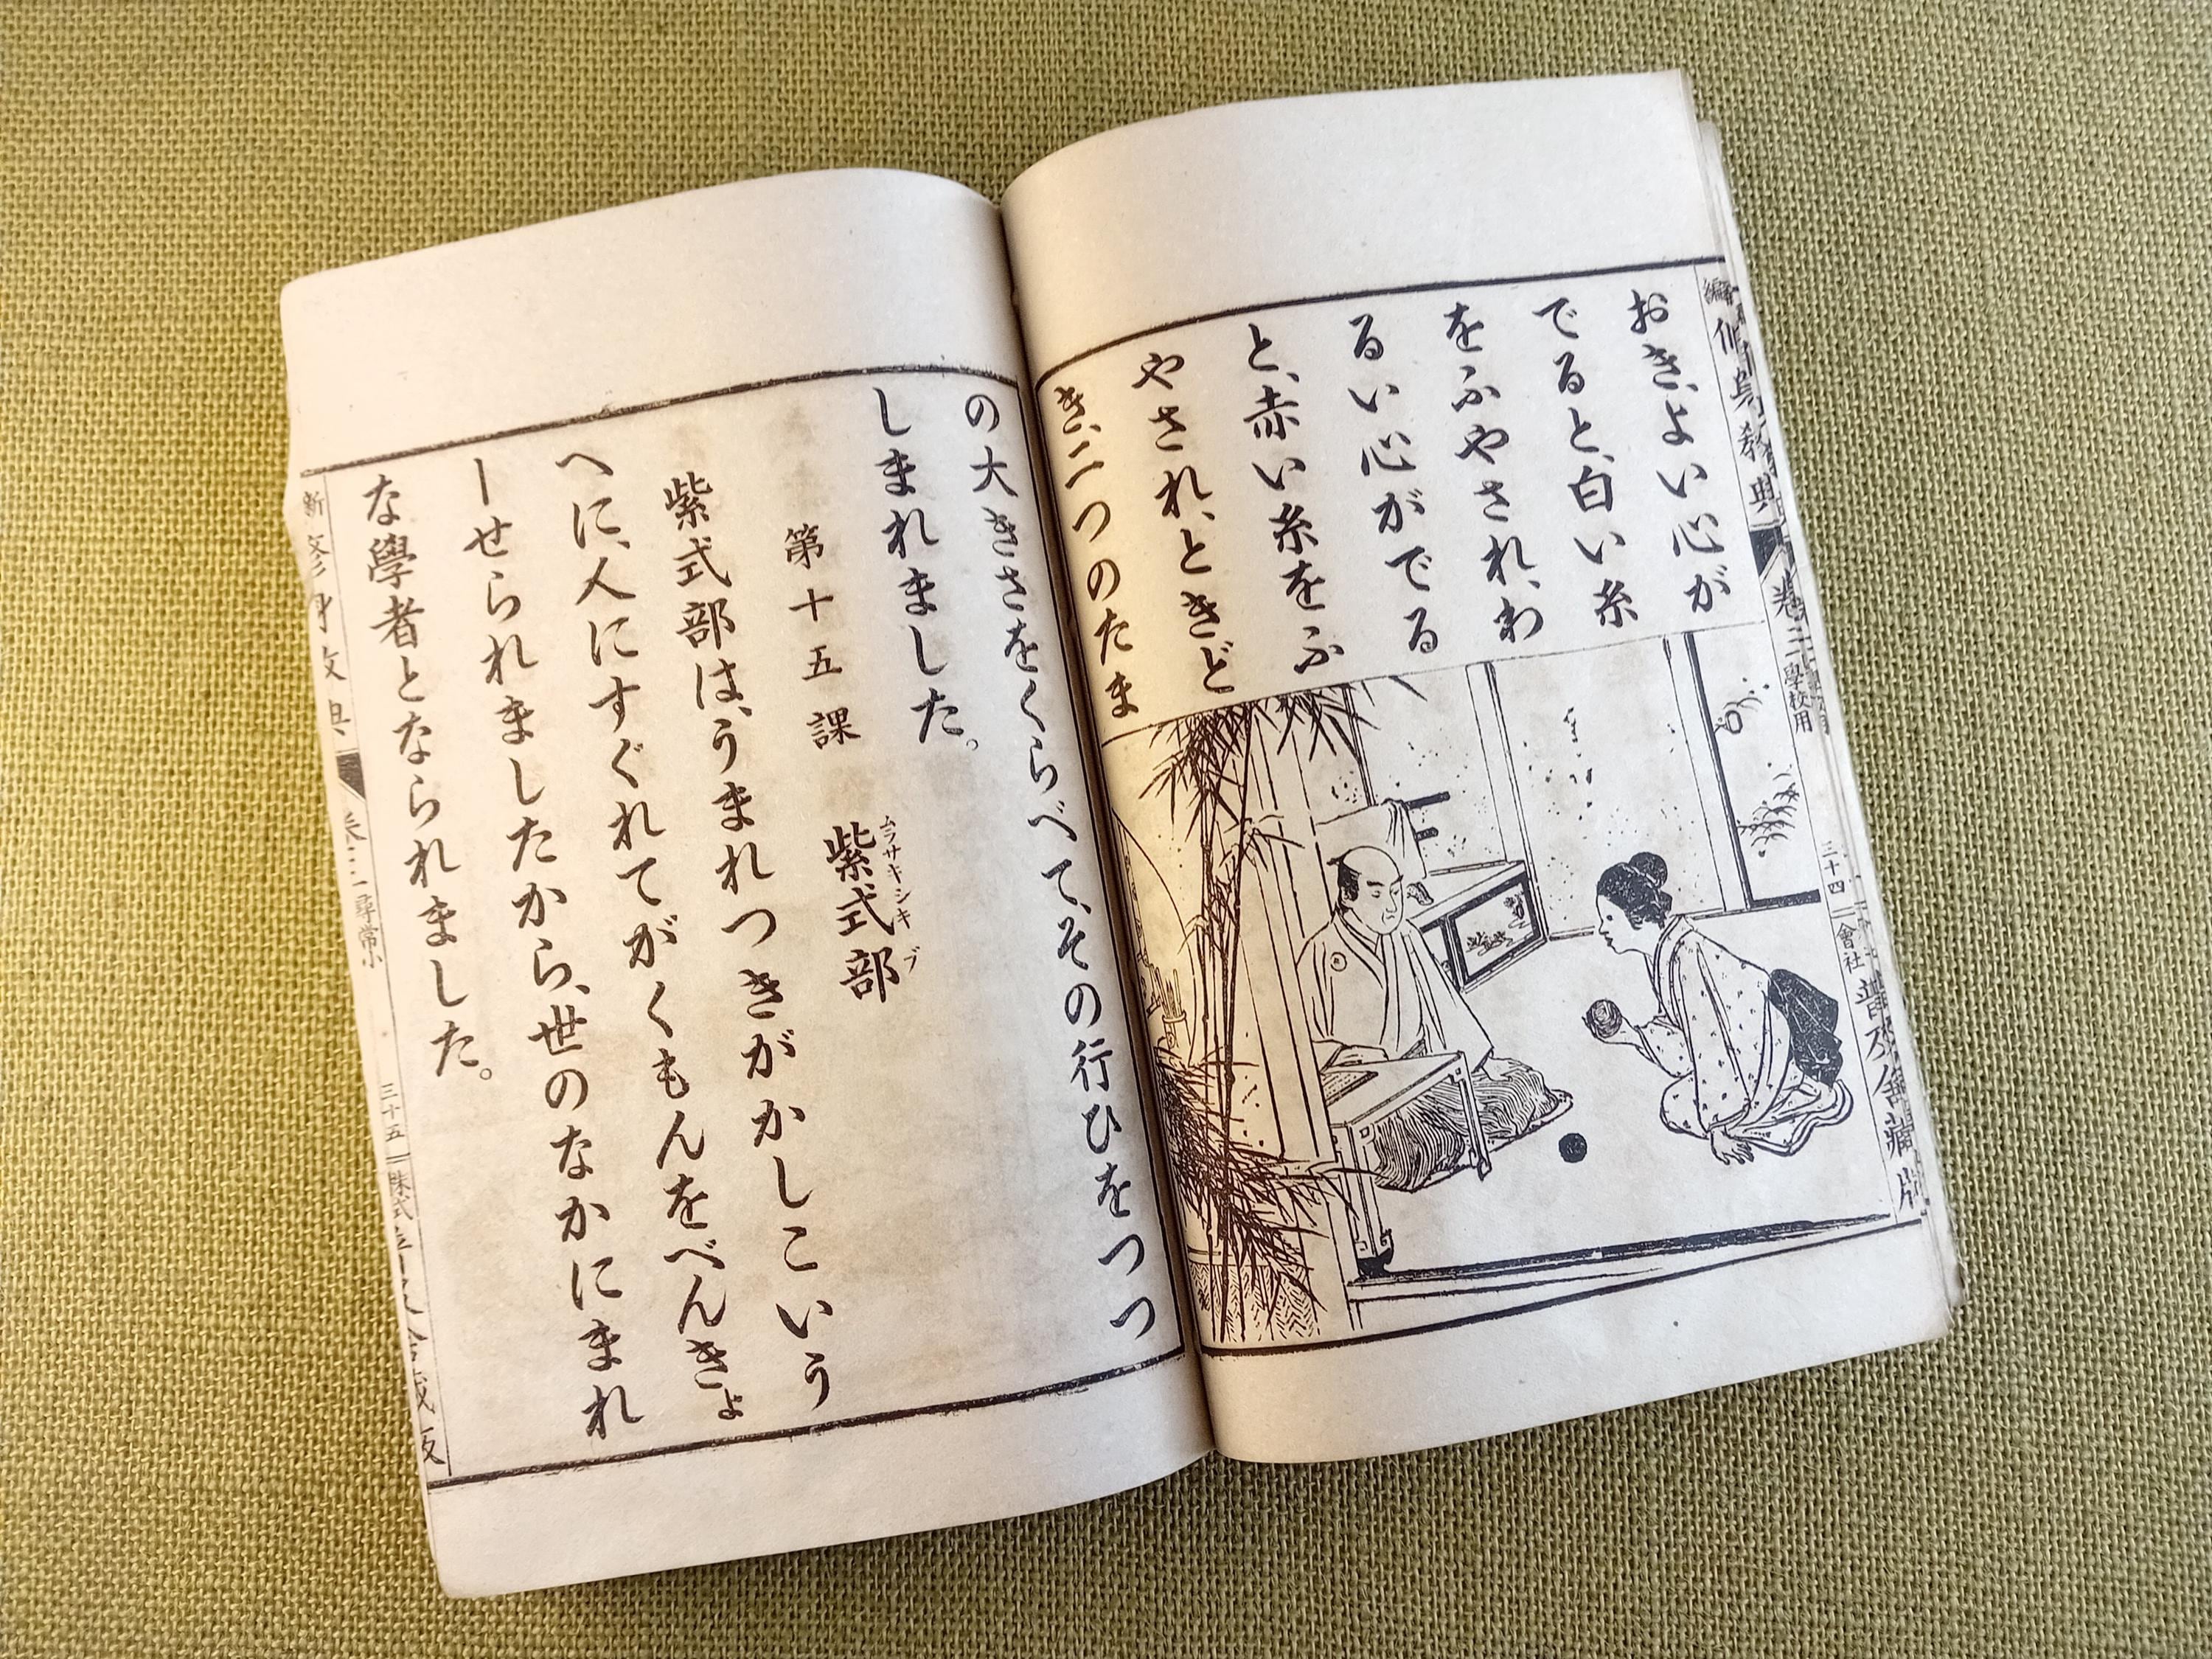 おき、よい心が
でると、白い糸
をふやされ、わ
るい心がでる
と、赤い糸をふ
やされ、ときど
き、二つのたま
三十四
會社
の大きさをくらべて、その行ひをつつ
しまれました。
第十五課 紫式部
ムラサキシキブ
紫式部は、うまれつきがかしこいう
へに、人にすぐれてがくもんをべんきょ
ーせられましたから、世のなかにまれ
な學者となられました。
新
尋常小
三十五
株式